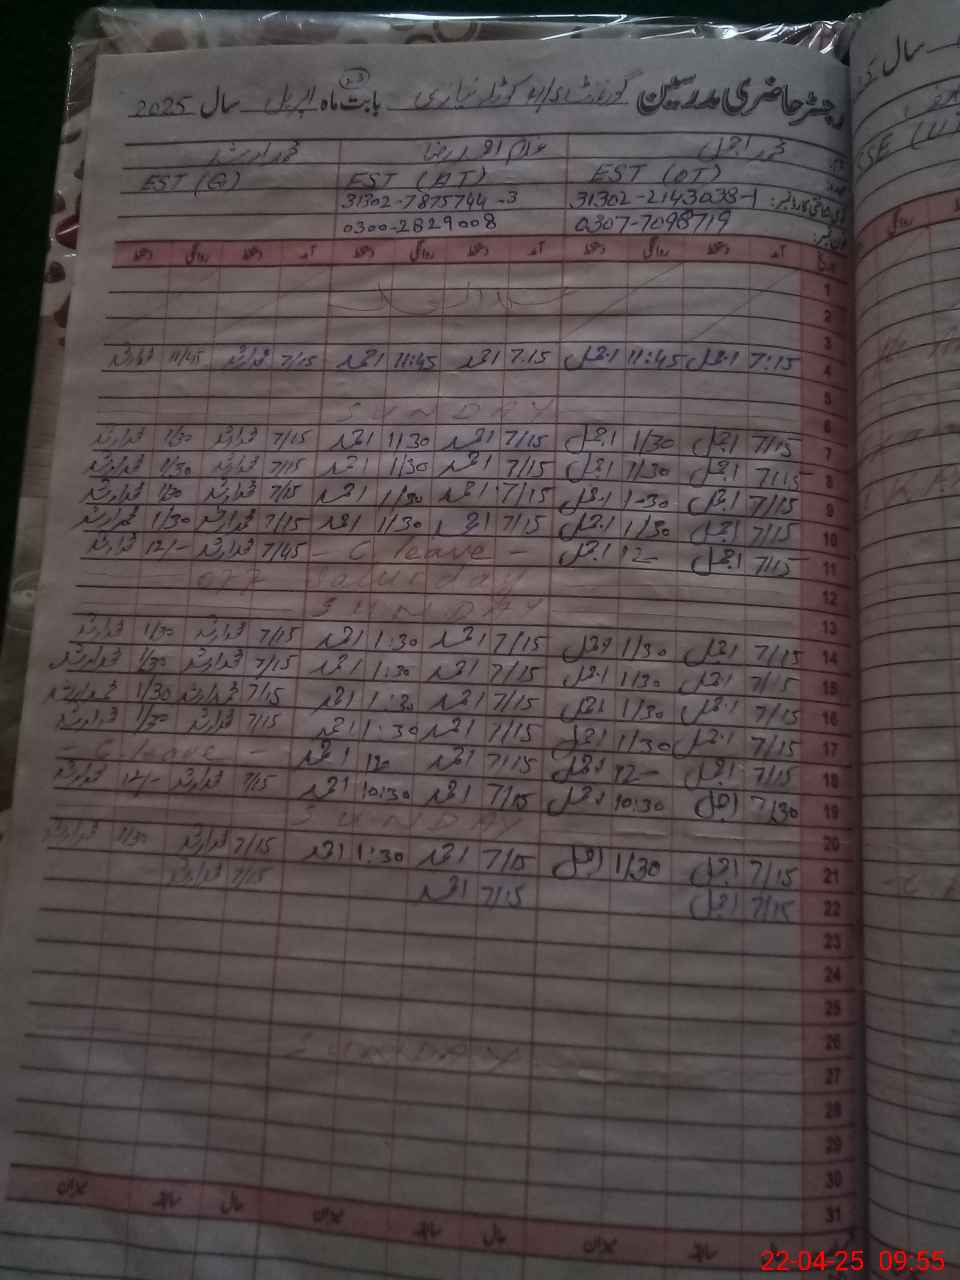 رجسٹر حاضری مدرسین گورنمنٹ بابت ماہ اپریل سال 2025
23
محمد اجمل غلام احمد رضا محمد ارشد
EST (OT) EST (AT) EST (Q)
31302-2143038-1 31302-7875744-3
0307-7098719 0300-2829008
آمد دستخط روانگی دستخط آمد دستخط روانگی دستخط آمد دستخط روانگی دستخط
1
2
3
4 7:15 اجمل 11:45 اجمل 7:15 احمد 11:45 احمد 7/15 محمد ارشد 11/45 محمد ارشد
5
6 SUNDAY
7 7/15 اجمل 1/30 اجمل 7/15 احمد 1/30 احمد 7/15 محمد ارشد 1/30 محمد ارشد
8 7/15 اجمل 1/30 اجمل 7/15 احمد 1/30 احمد 7/15 محمد ارشد 1/30 محمد ارشد
9 7/15 اجمل 1-30 اجمل 7/15 احمد 1/30 احمد 7/15 محمد ارشد 1/30 محمد ارشد
10 7/15 اجمل 1/30 اجمل 7/15 احمد 1/30 احمد 7/15 محمد ارشد 1/30 محمد ارشد
11 7/15 اجمل 12- اجمل - C leave - 7/45 محمد ارشد 12/- محمد ارشد
12 OFF Saturday
13 SUNDAY
14 7/15 اجمل 1/30 اجمل 7/15 احمد 1:30 احمد 7/15 محمد ارشد 1/30 محمد ارشد
15 7/15 اجمل 1/30 اجمل 7/15 احمد 1:30 احمد 7/15 محمد ارشد 1/30 محمد ارشد
16 7/15 اجمل 1/30 اجمل 7/15 احمد 1:30 احمد 7/15 محمد ارشد 1/30 محمد ارشد
17 7/15 اجمل 1/30 اجمل 7/15 احمد 1:30 احمد 7/15 محمد ارشد 1/30 محمد ارشد
18 7/15 اجمل 12- اجمل 7/15 احمد 12 احمد - C leave -
19 7/30 اجمل 10:30 اجمل 7/15 احمد 10:30 احمد 7/15 محمد ارشد 12/- محمد ارشد
20 SUNDAY
21 7/15 اجمل 1/30 اجمل 7/15 احمد 1:30 احمد 7/15 محمد ارشد 1/30 محمد ارشد
22 7/15 اجمل 7/15 احمد 7/15 محمد ارشد
23
24
25
26
27 SUNDAY
28
29
30
31
میزان سابقہ حال میزان سابقہ حال میزان
22-04-25 09:55